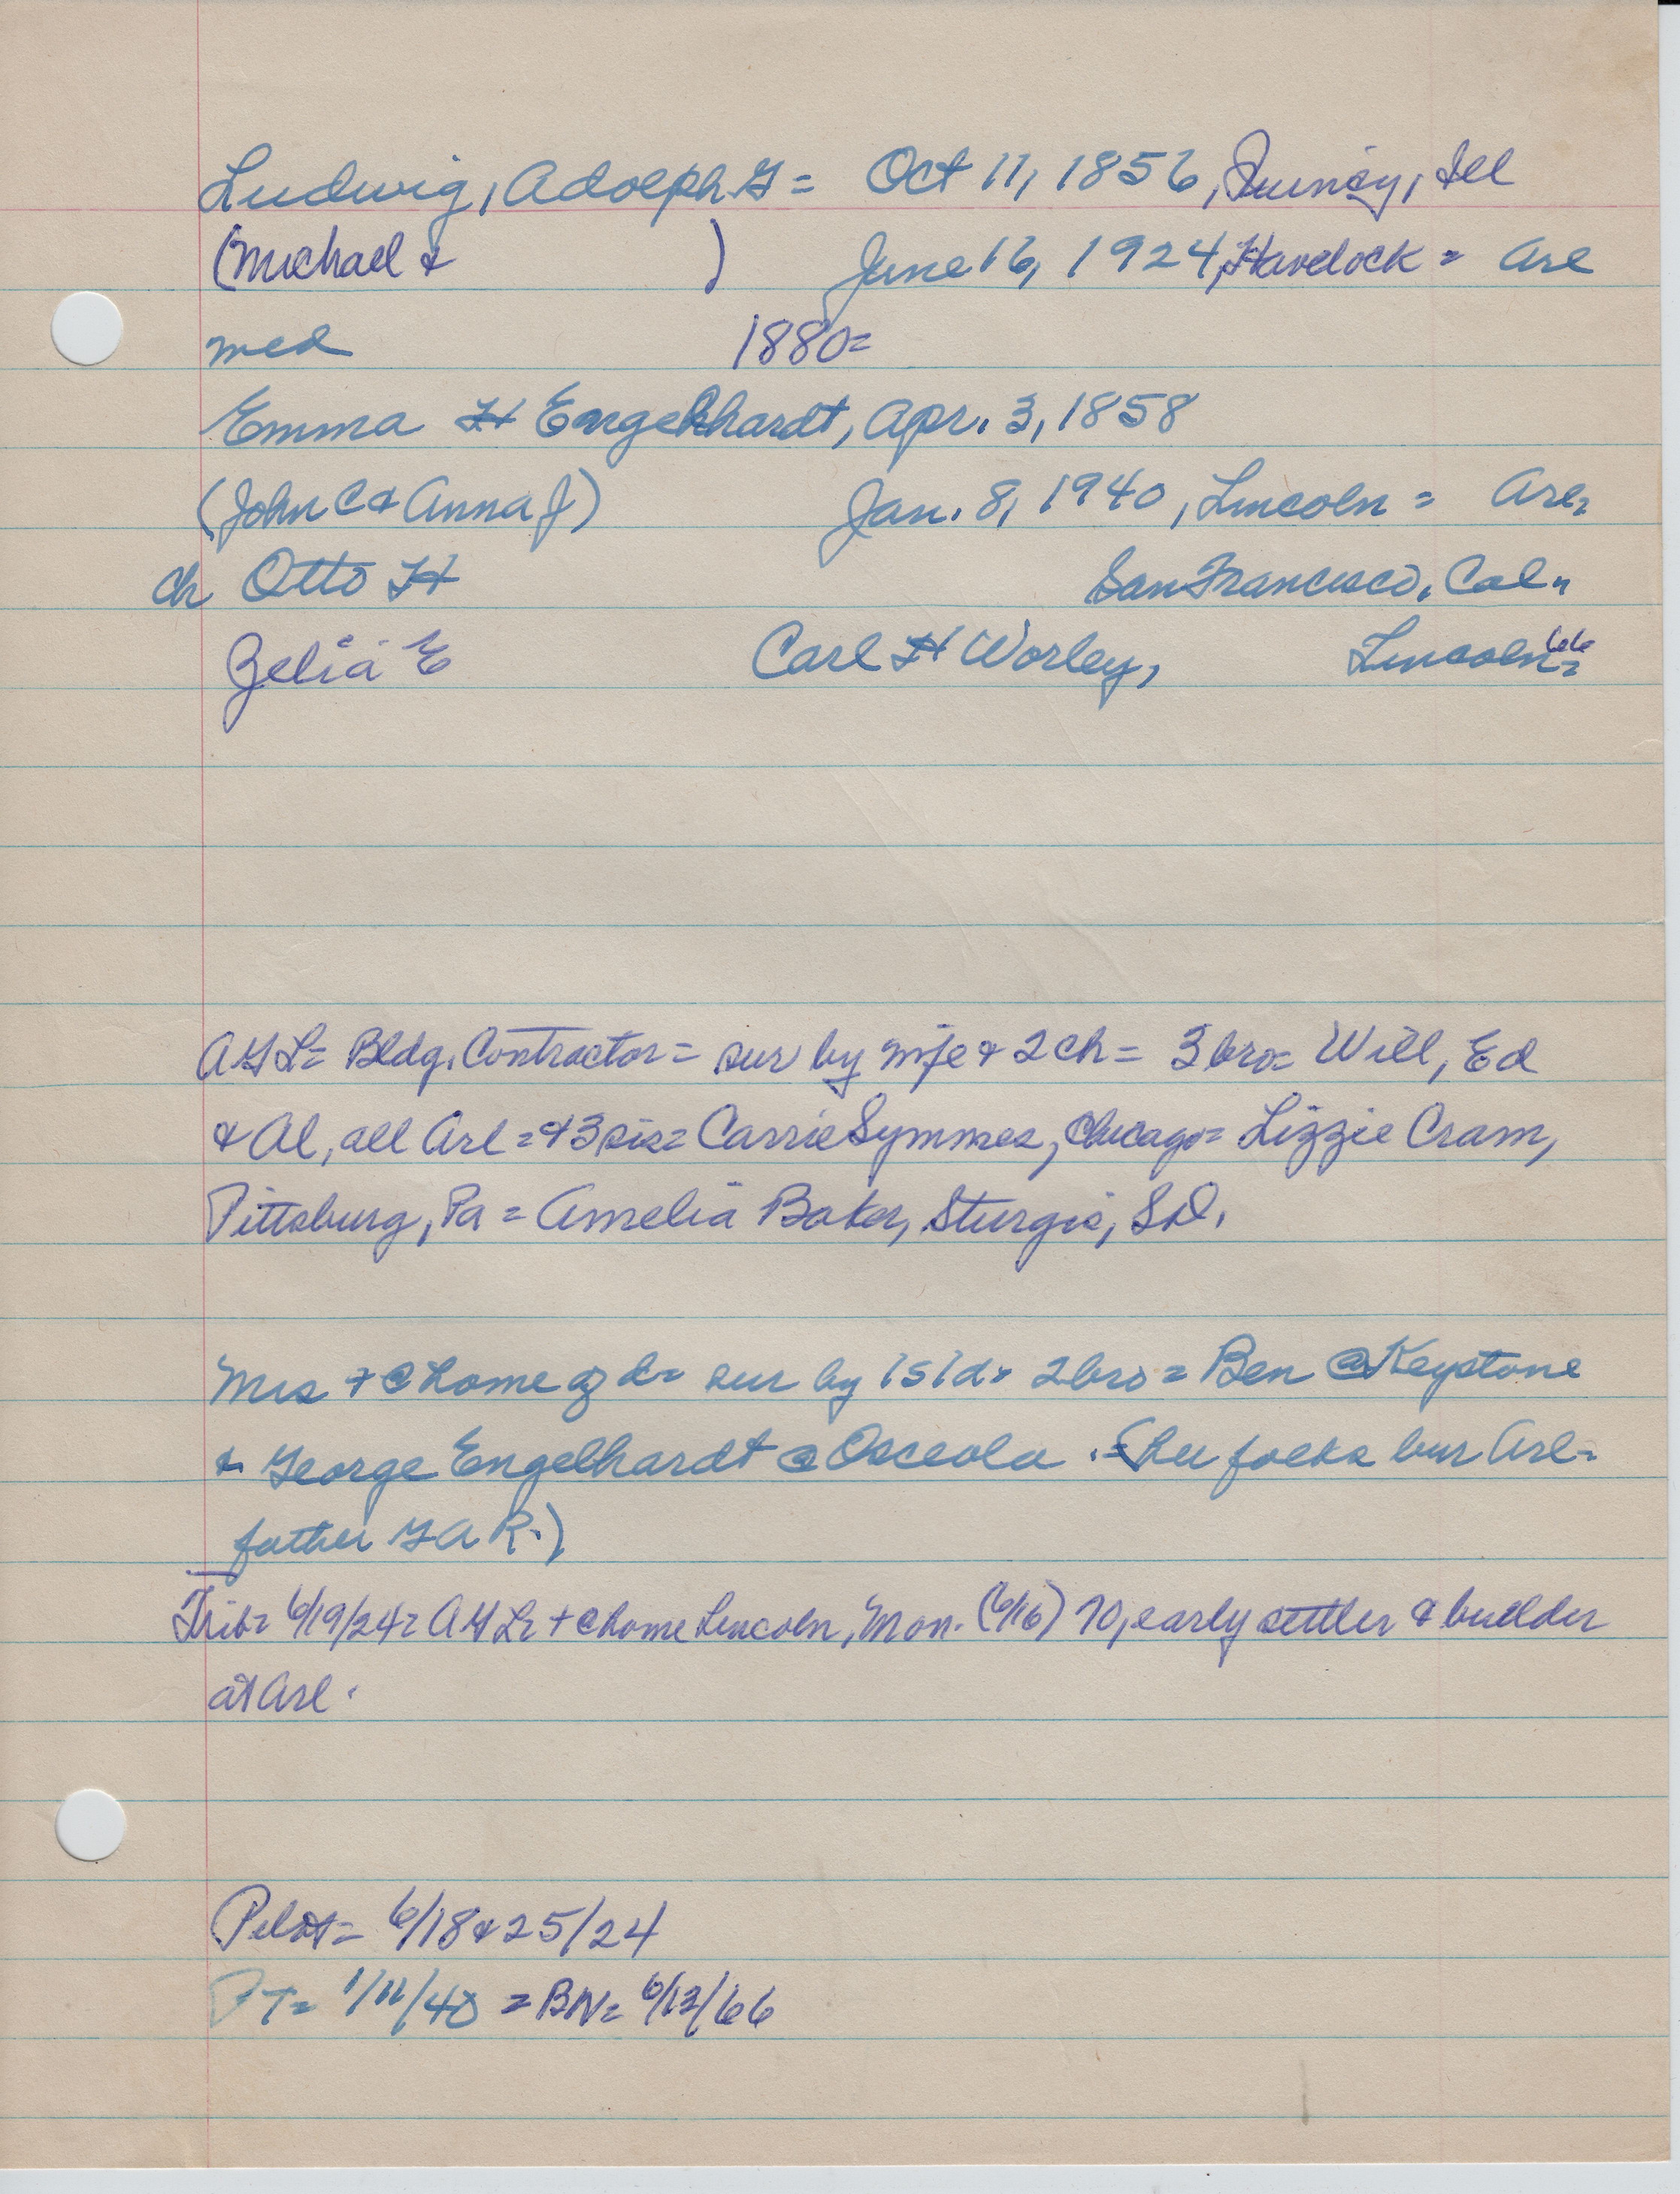 Ludwig, Adolph G = Oct 11, 1856, Quincy, Ill
(Michael & ) June 16, 1924, Havelock = Arl
med 1880=
Emma H Engelhardt, Apr. 3, 1858
(John C & Anna J) Jan. 8, 1940, Lincoln = Arl=
ch Otto H San Francisco, Cal=
Zelia E Carl H Worley, Lincoln= 66
AGL= Bldg. Contractor = sur by wife & 2 ch = 3 bro= Will, Ed
& Al, all Arl = & 3 sis= Carrie Symmes, Chicago= Lizzie Cram,
Pittsburg, Pa = Amelia Baker, Sturgis, SD.
Mrs + @ home of d= sur by 1s 1d= 2 bro = Ben @ Keystone
& George Engelhardt @ Osceola. =(her folks bur Arl=
father GAR.)
Trib= 6/19/24= AGL= + @ home Lincoln, Mon. (6/16) 70, early settler & builder
at Arl.
Pilot= 6/18 & 25/24
PT= 1/11/40 = BN= 6/13/66